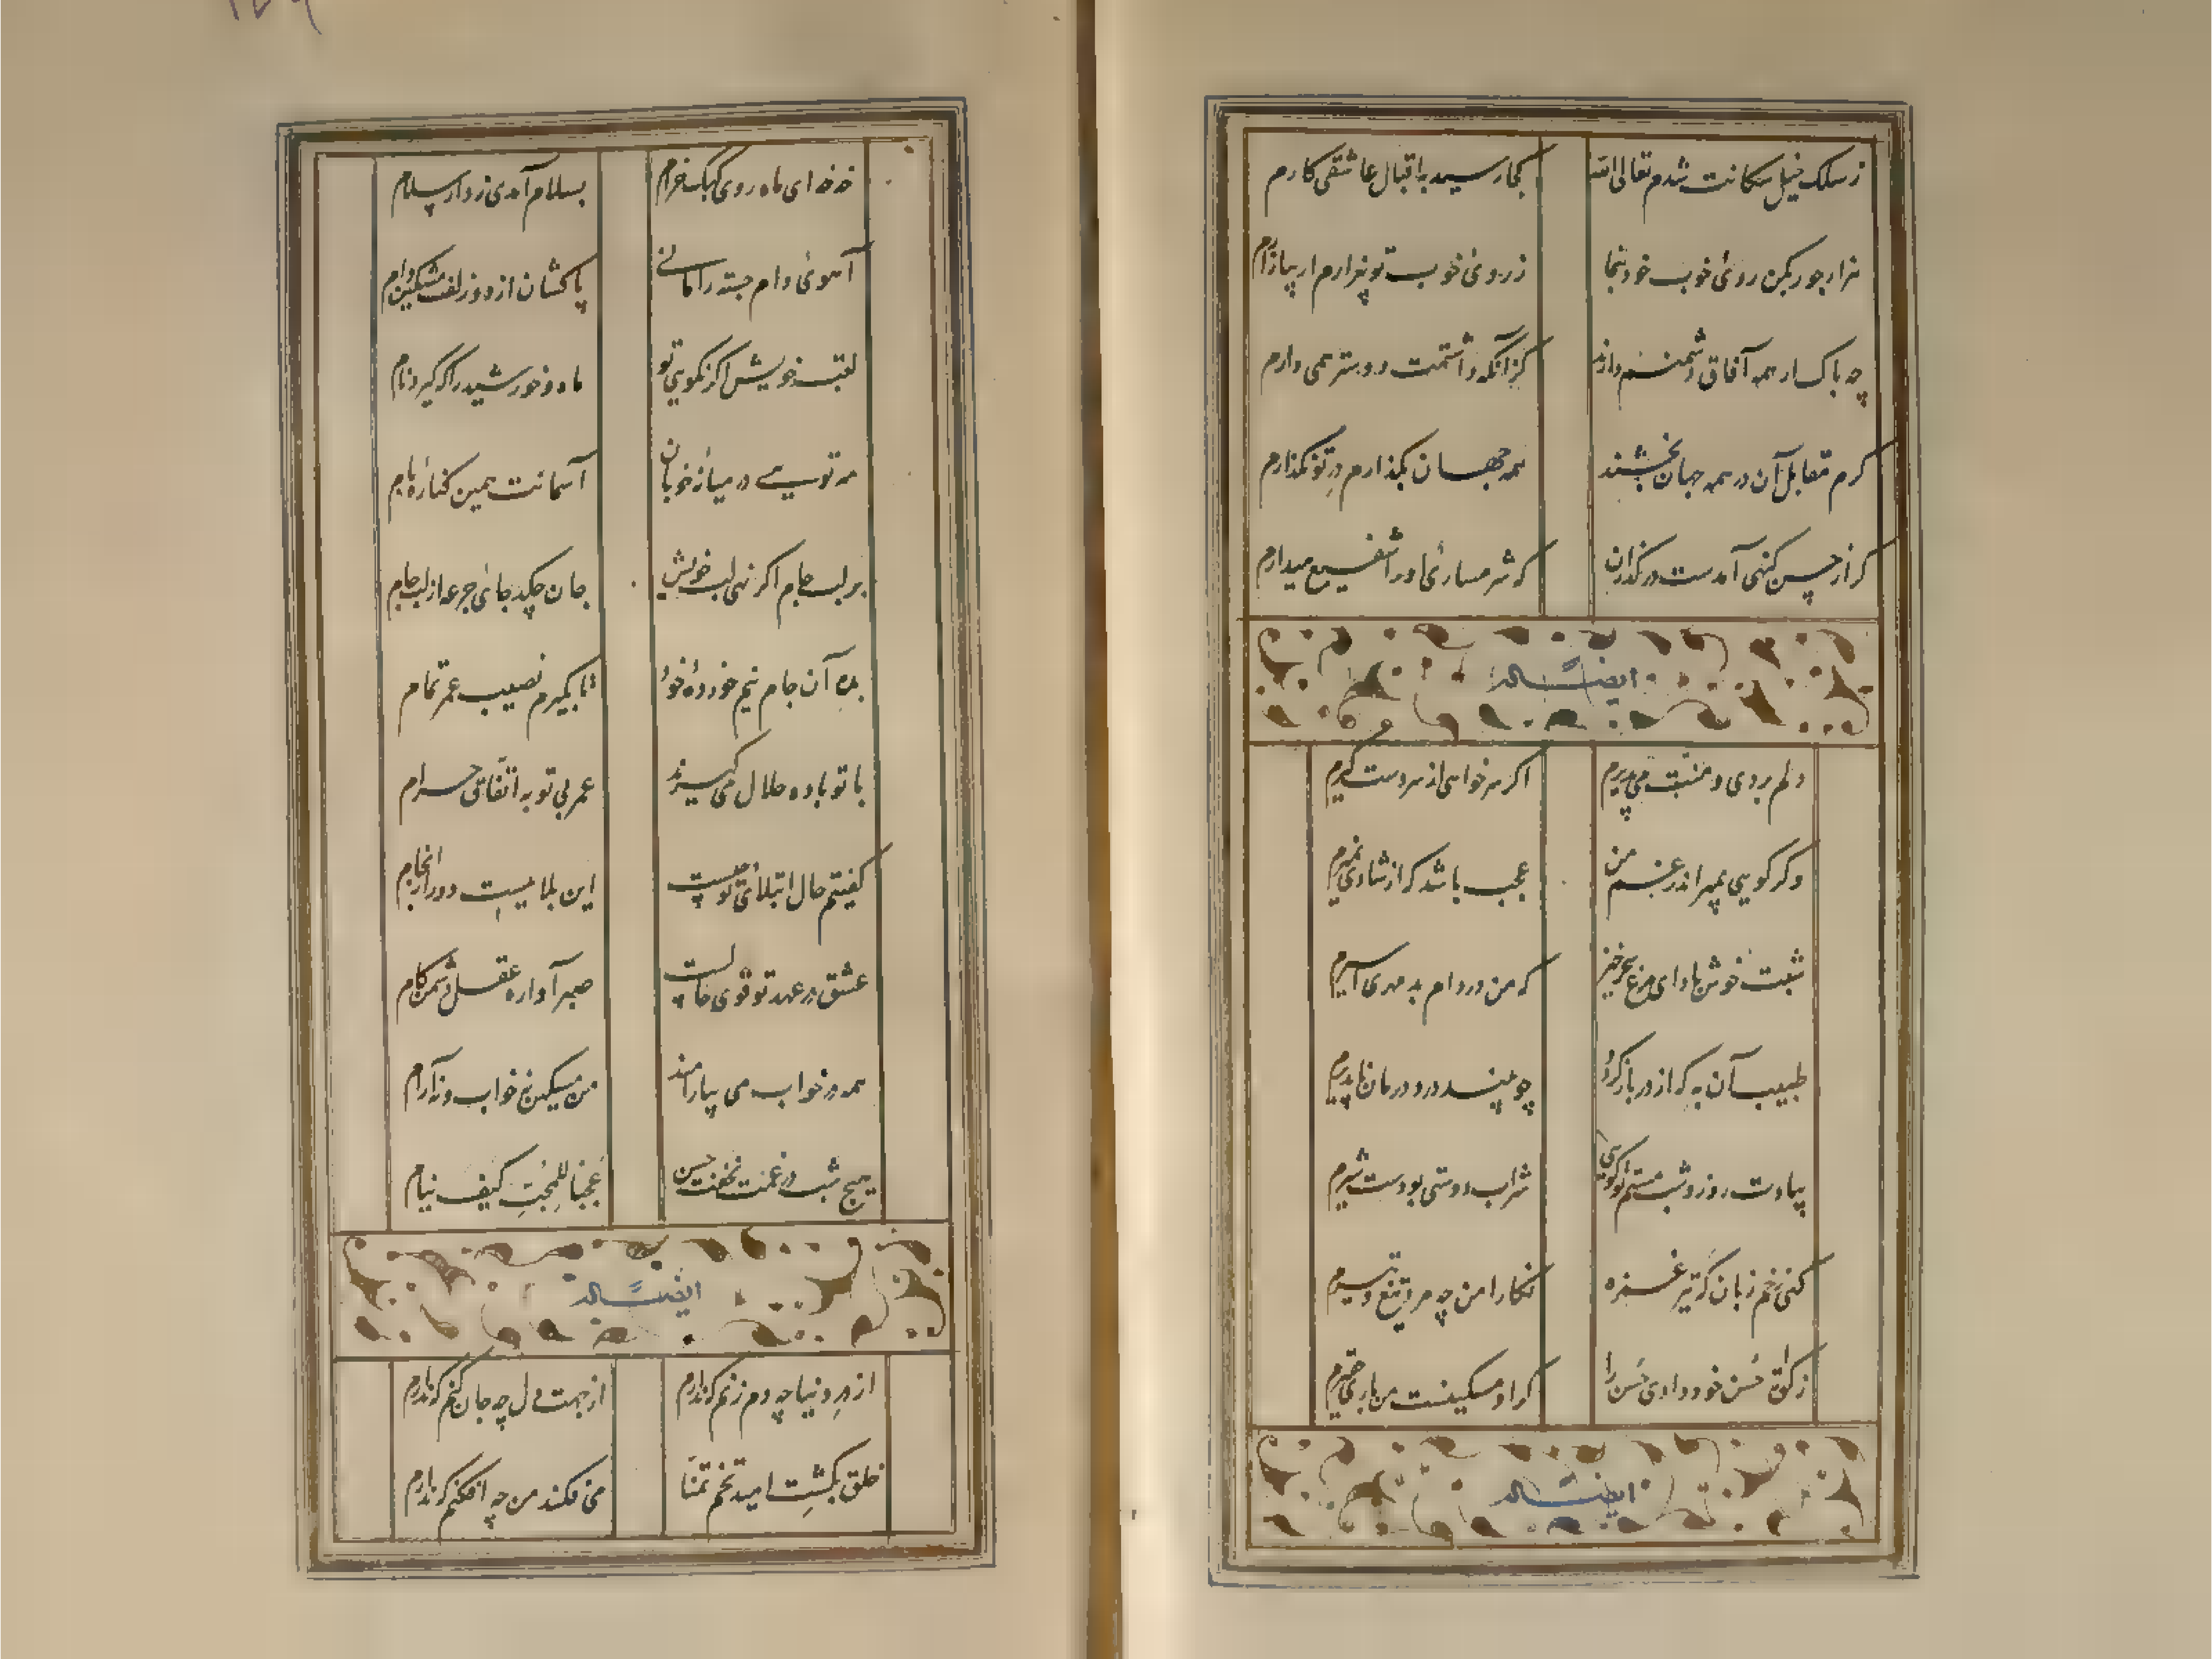 ز سلک خیل سکانت شدم تعالی الله بکجا رسید به اقبال عاشقی کارم
هزار جور بکن روی خوب خود بنما ز روی خوب تو بیزارم ار بیازارم
چه باک ار همه آفاق دشمنم دارند کز آنکه داشتمت دوستر همی دارم
کرم مقابل آن در همه جهان بخشند همه جهان بگذارم در تو نگذارم
کر از حسن کنهی آمدست در گذران که شرمساری او را شفیع میدارم
ایضاً له
دلم بردی و منت می پذیرم اگر سر خواهی از سر دست گیرم
وگر گویی بمیر اندر غم من عجب باشد کز شادی نمیرم
شبت خوش باد ای مرغ سحرخیز که من در دام بدمهری اسیرم
طبیب آن به که از در باز گردد چو بیند درد درمان ناپذیرم
بیادت روز و شب مستم تو گویی شراب دوستی بودست شیرم
کنی زخم زبان گر تیر غمزه نگارا من چه مرد تیغ و تیرم
زکوة حسن خود دادی حسن را که او مسکینست من باری فقیرم
ایضاً له
خه خه ای ماه روی کبک خرام بسلام آمدی زدار سلام
آهوی دام جسته را مانی پاکشان از دو زلف مشکین دام
لقب خویش اگر نگویی تو ماه و خورشید را که گیرد نام
مه تویی در میانه خوبان آسمانت همین کناره بام
بر لب جام اگر نهی لب خویش جان چکد جای جرعه از لب جام
بده آن جام نیم خورده خود تا بگیرم نصیب عمر تمام
با تو باده حلال می گیرند عمر بی تو به اتفاق حرام
گفتیم حال ابتلای تو چیست این بلاییست دور از انجام
عشق در عهد تو قوی حالست صبر آواره عقل دشمن کام
همه در خواب می بیارامند من مسکین نه خواب و نه آرام
هیچ شب در غمت نخفت حسن عجبا للمحب کیف ینام
ایضاً له
از مه دنیا چه دم زنم که ندارم از جهت دل چه جان کنم که ندارم
خلق بکشت امید تخم تمنا می فکند من چه افکنم که ندارم